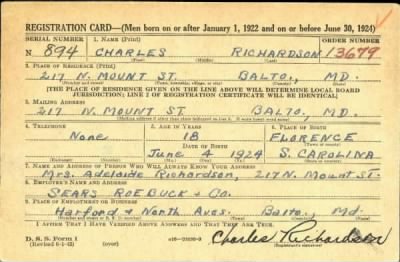 REGISTRATION CARD—(Men born on or after January 1, 1922 and on or before June 30, 1924)
SERIAL NUMBER 1. NAME (Print) ORDER NUMBER
N 894 CHARLES RICHARDSON 13679
(First) (Middle) (Last)
2. PLACE OF RESIDENCE (Print)
217 N. MOUNT ST. BALTO., MD.
(Number and street) (Town, township, village, or city) (County) (State)
[THE PLACE OF RESIDENCE GIVEN ON THE LINE ABOVE WILL DETERMINE LOCAL BOARD
JURISDICTION; LINE 2 OF REGISTRATION CERTIFICATE WILL BE IDENTICAL]
3. MAILING ADDRESS
217 N. MOUNT ST. BALTO., MD.
4. TELEPHONE 5. AGE IN YEARS 6. PLACE OF BIRTH
None 18 FLORENCE
DATE OF BIRTH (Town or county)
June 4 1924 S. CAROLINA
(Mo.) (Day) (Yr.) (State or country)
7. NAME AND ADDRESS OF PERSON WHO WILL ALWAYS KNOW YOUR ADDRESS
Mrs. Adelaide Richardson, 217 N. Mount St.
8. EMPLOYER'S NAME AND ADDRESS
SEARS ROEBUCK & Co.
9. PLACE OF EMPLOYMENT OR BUSINESS
Harford & North Aves. Balto. Md.
I AFFIRM THAT I HAVE VERIFIED ABOVE ANSWERS AND THAT THEY ARE TRUE.
D. S. S. Form 1
(Revised 6-1-42)
Charles Richardson